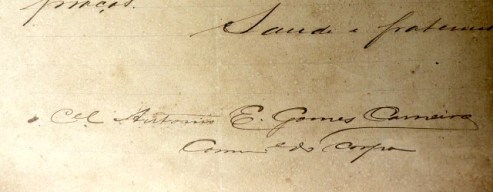 praças.
Saude e fraterni
Cel. Antonio E. Gomes Carneiro
Comm.e do Corpo